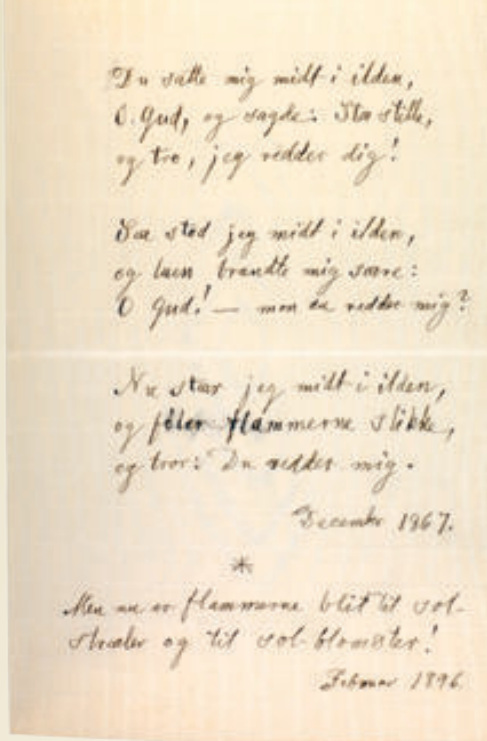 Du satte mig midt i ilden,
O. Gud, og sagde: Staa stille,
og tro, jeg redder dig!
Saa stod jeg midt i ilden,
og luen brændte mig saare:
O Gud! — mon du redder mig?
Nu staar jeg midt i ilden,
og føler flammerne slikke,
og tror: Du redder mig.
December 1867.
*
Men nu er flammerne blit til sol-
straaler og til sol-blomster!
Februar 1896.